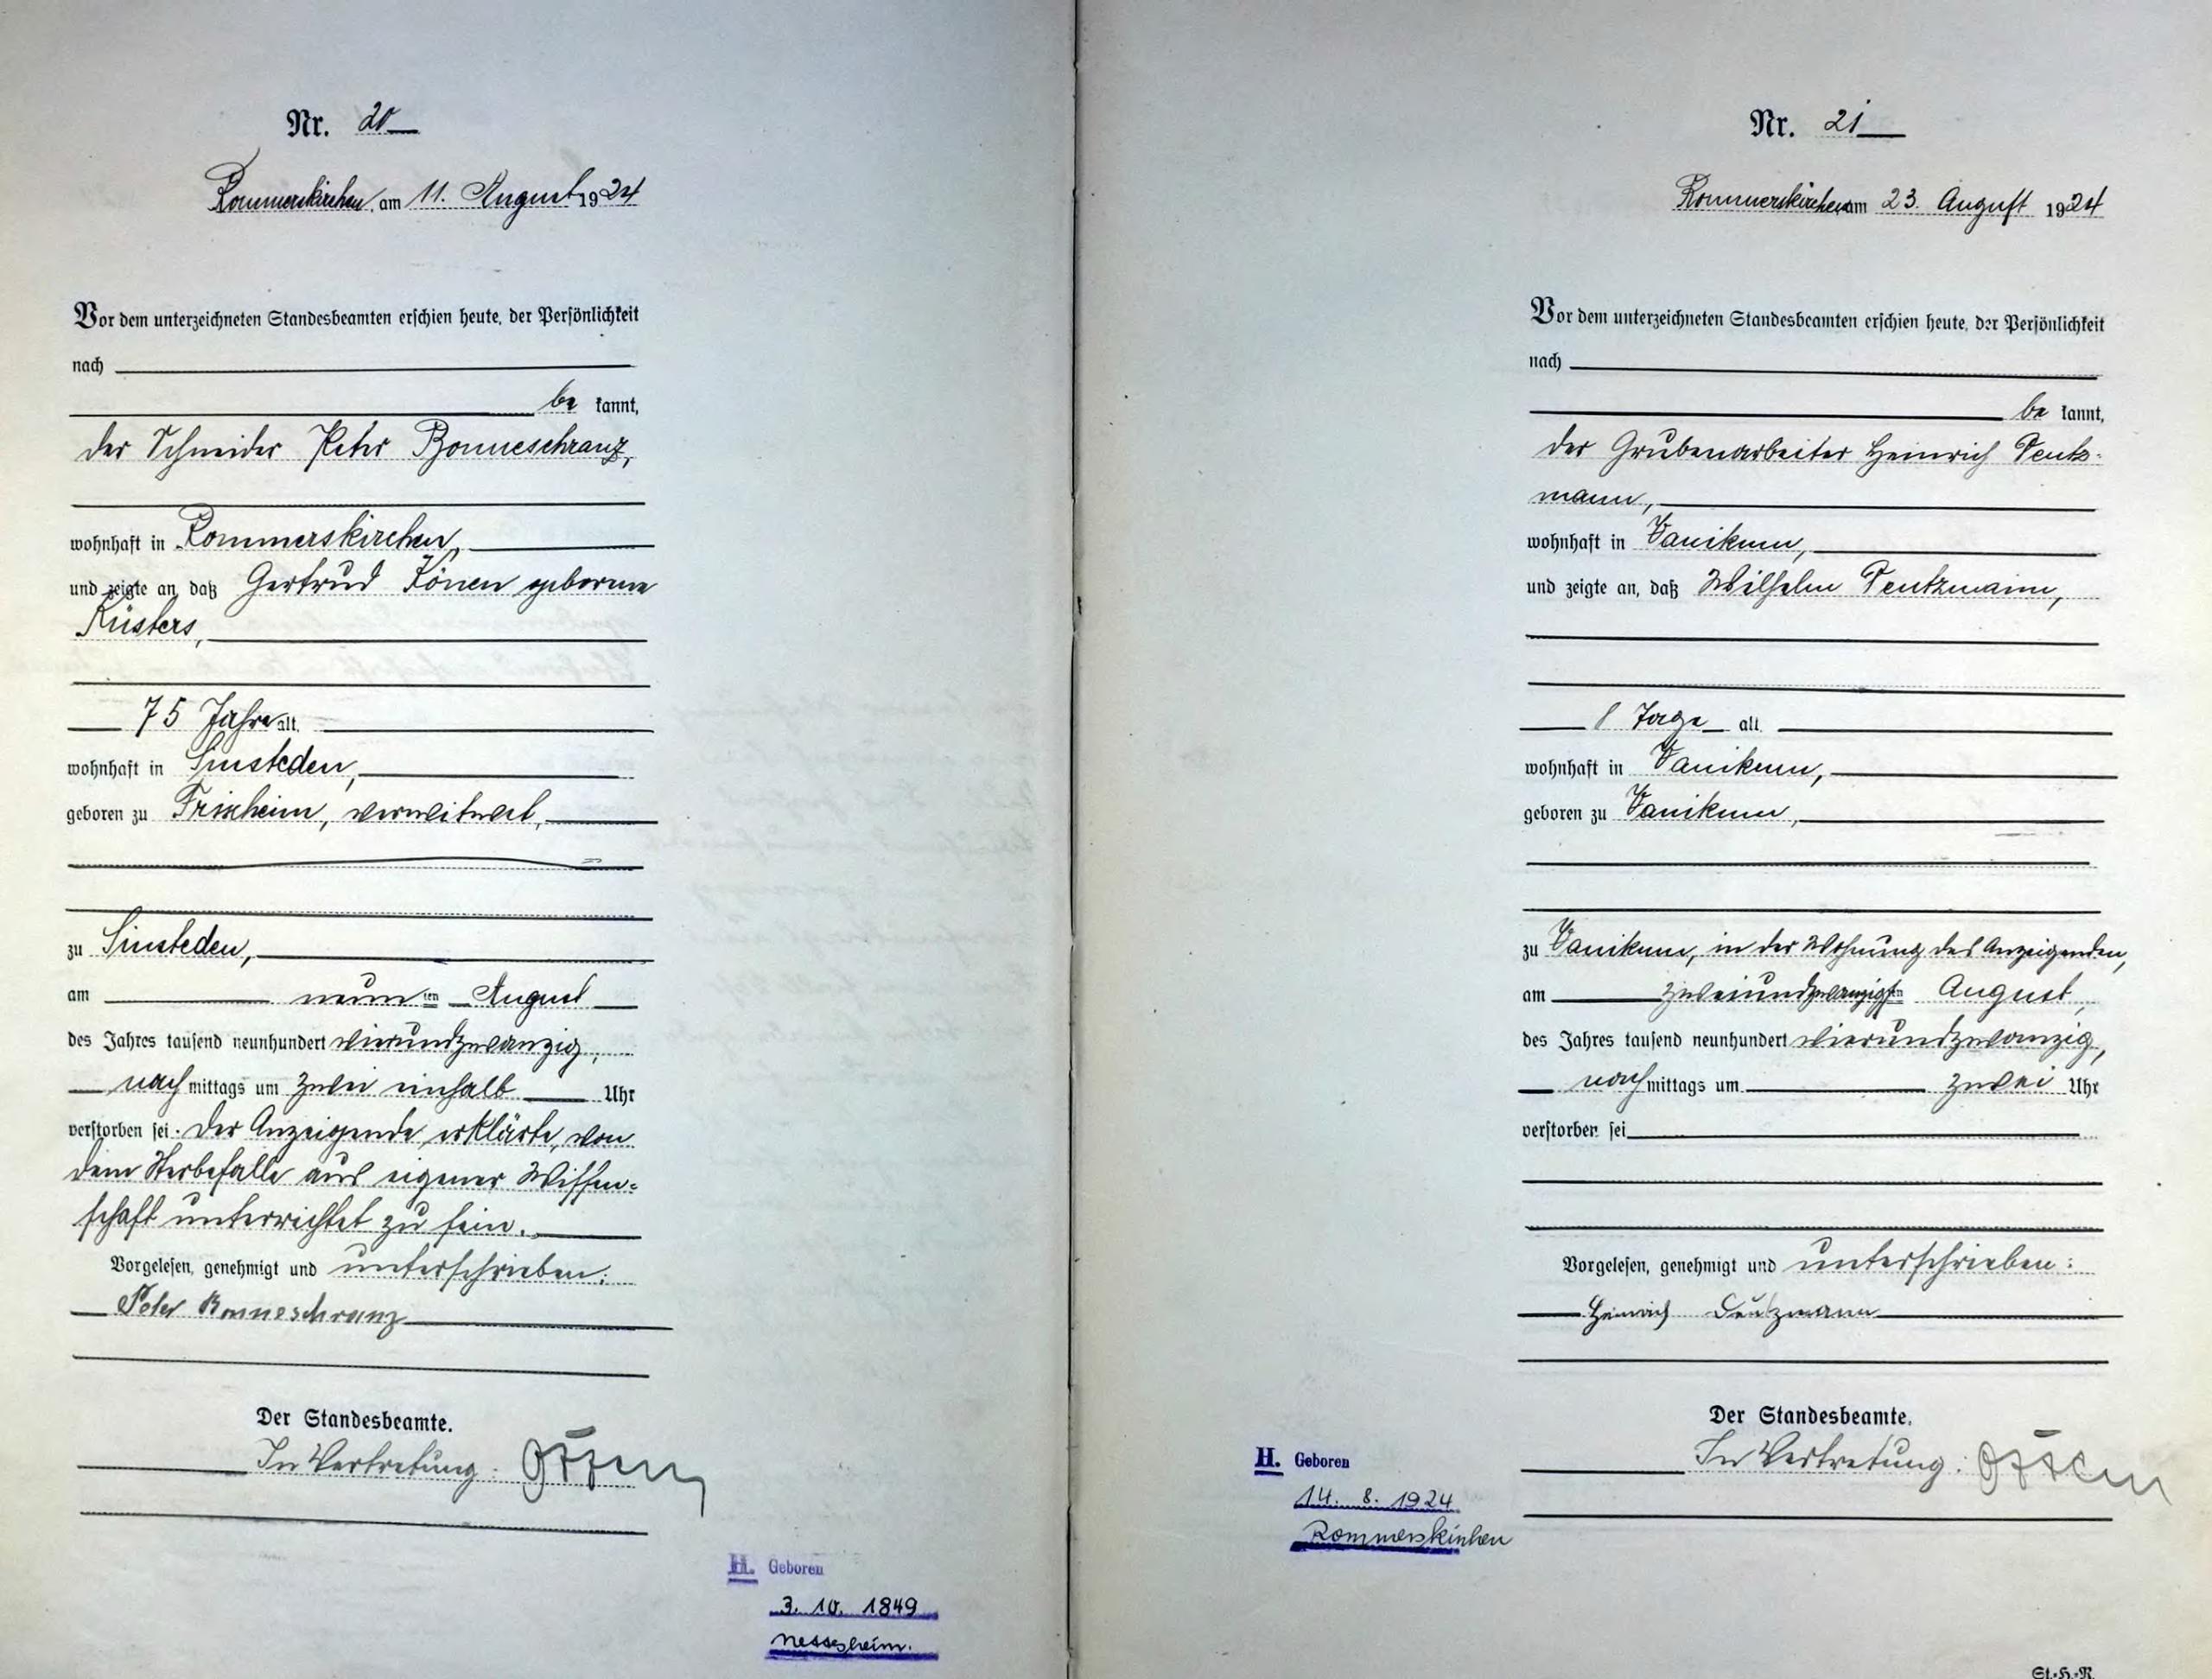 Nr. 20
Rommerskirchen, am 11. August 1924
Vor dem unterzeichneten Standesbeamten erschien heute, der Persönlichkeit
nach
be kannt,
der Schneider Peter Bonneschranz,
wohnhaft in Rommerskirchen,
und zeigte an, daß Gertrud Könen geborene
Küsters,
75 Jahre alt,
wohnhaft in Sinsteden,
geboren zu Frixheim, verwitwet,
zu Sinsteden,
am neun ten August
des Jahres tausend neunhundert vierundzwanzig,
nach mittags um zwei einhalb Uhr
verstorben sei. Der Anzeigende erklärte, von
dem Sterbefalle aus eigener Wissen-
schaft unterrichtet zu sein.
Vorgelesen, genehmigt und unterschrieben:
Peter Bonneschranz
Der Standesbeamte.
In Vertretung:
H. Geboren
3. 10. 1849
Nr. 21
Rommerskirchen am 23. August 1924
Vor dem unterzeichneten Standesbeamten erschien heute, der Persönlichkeit
nach
be kannt,
der Grubenarbeiter Heinrich Deutz-
mann,
wohnhaft in Vanikum,
und zeigte an, daß Wilhelm Deutzmann,
8 Tage alt,
wohnhaft in Vanikum,
geboren zu Vanikum,
zu Vanikum, in der Wohnung des Anzeigenden,
am zweiundzwanzigsten August,
des Jahres tausend neunhundert vierundzwanzig,
nach mittags um zwei Uhr
verstorben sei
Vorgelesen, genehmigt und unterschrieben:
Heinrich Deutzmann
Der Standesbeamte.
In Vertretung:
H. Geboren
14. 8. 1924
Rommerskirchen